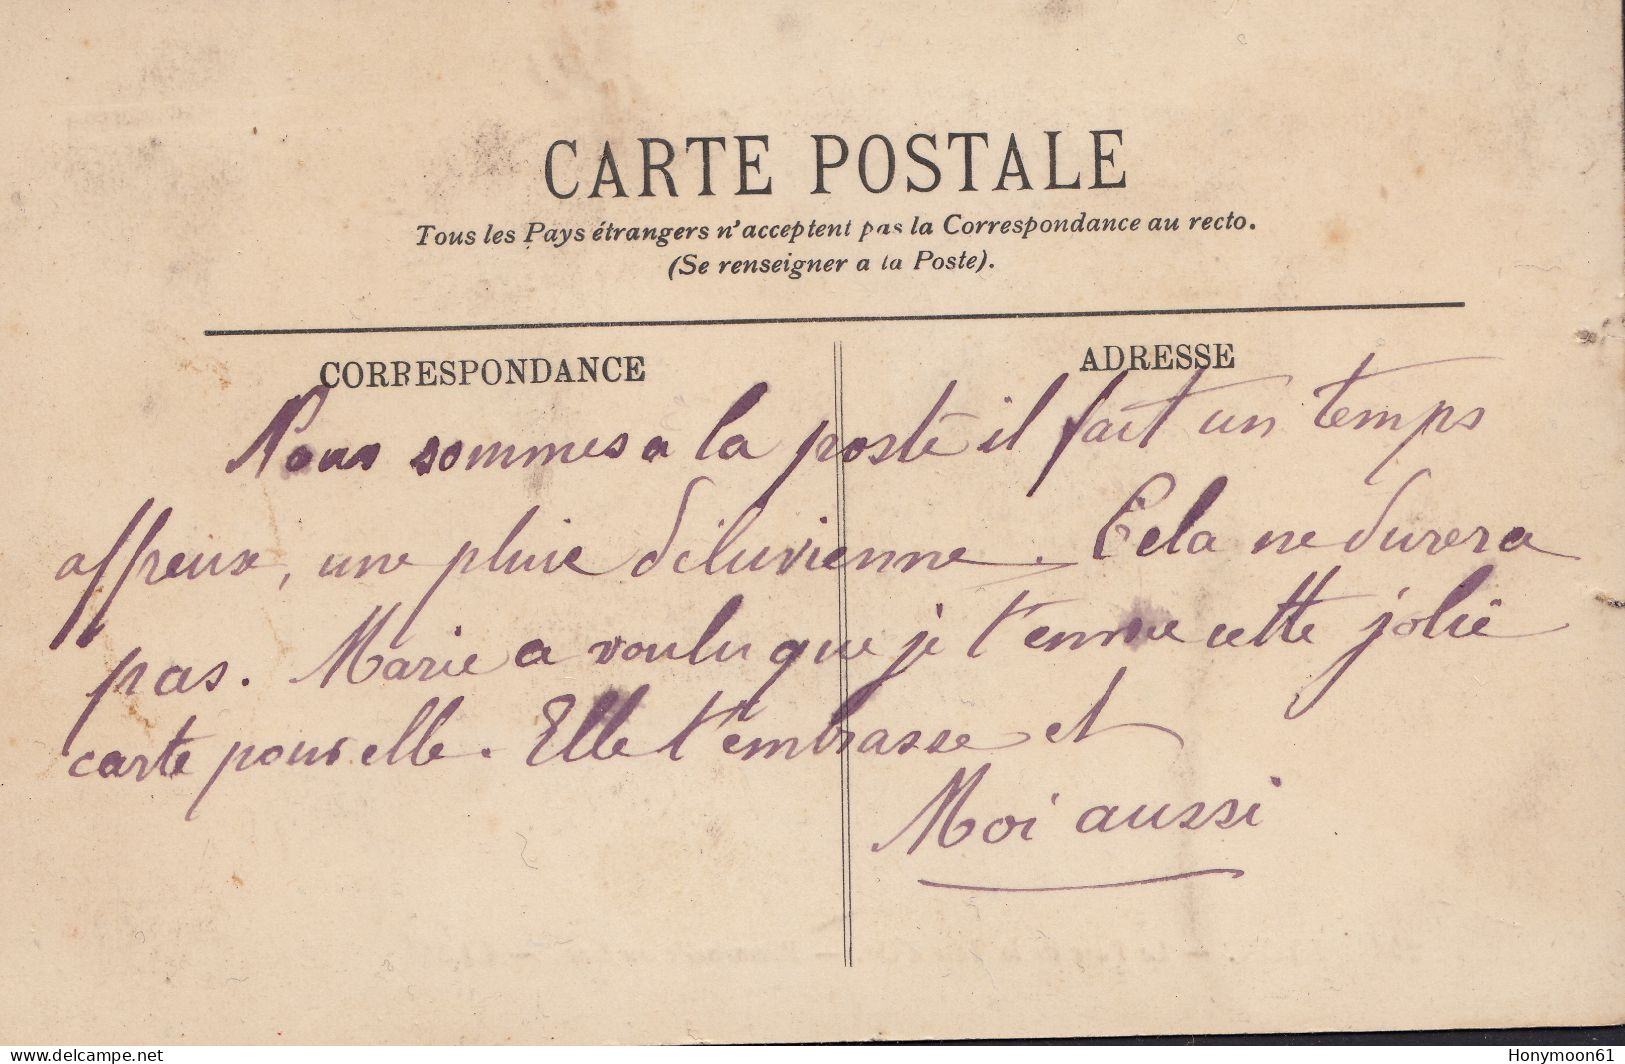 CARTE POSTALE
Tous les Pays étrangers n'acceptent pas la Correspondance au recto.
(Se renseigner a la Poste).
CORRESPONDANCE
ADRESSE
Nous sommes a la poste il fait un temps
affreux, une pluie diluvienne. Cela ne durera
pas. Marie a voulu que je t'envoie cette jolie
carte pour elle. Elle t'embrasse et
Moi aussi
delcampe.net
Honymoon61